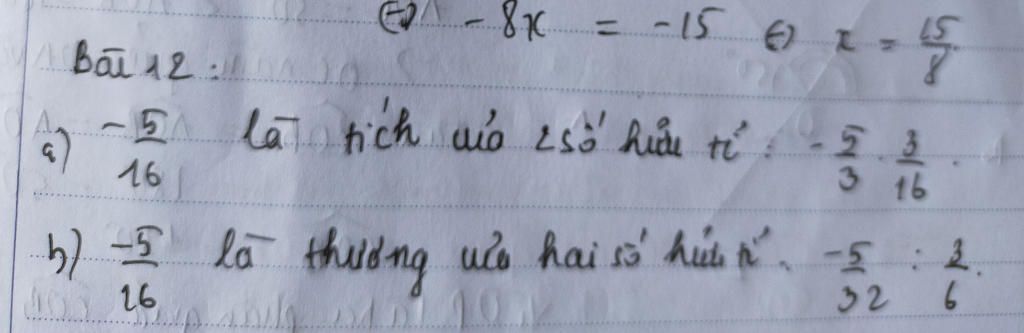 ⇔ - 8x = -15 ⇔ x = 15/8
Bài 12 :
a) -5/16 là tích của 2 số hữu tỉ : -5/3 . 3/16 .
b) -5/16 là thương của hai số hữu tỉ . -5/32 : 3/6 .